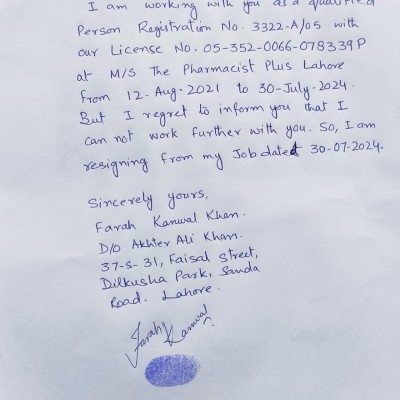 I am working with you as a qualified
Person Registration No. 3322-A/05 with
our License No. 05-352-0066-078339P
at M/S The Pharmacist Plus Lahore
from 12-Aug-2021 to 30-July-2024.
But I regret to inform you that I
can not work further with you. So, I am
resigning from my Job dated 30-07-2024.
Sincerely yours,
Farah Kanwal Khan.
D/O Akhter Ali Khan.
37-S-31, Faisal Street,
Dilkusha Park, Sanda
Road. Lahore.
Farah Kanwal